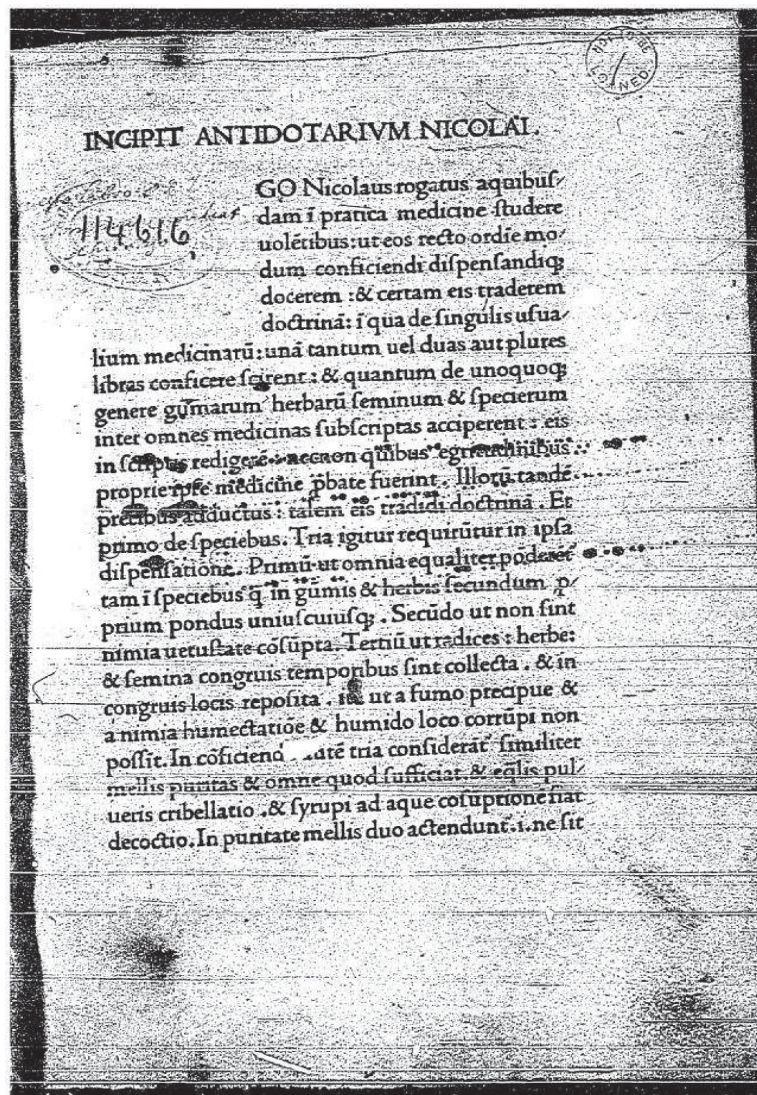 INCIPIT ANTIDOTARIVM NICOLAI.
114616
GO Nicolaus rogatus aquibuſ⸗
dam ī pratica medicine ſtudere
uolētibus: ut eos recto ordīe mo⸗
dum conficiendi diſpenſandiqꝫ
docerem : & certam eis traderem
doctrinā: ī qua de ſingulis uſua⸗
lium medicinarū: unā tantum uel duas aut plures
libras conficere ſcirent : & quantum de unoquoqꝫ
genere gūmarum herbarū ſeminum & ſpecierum
inter omnes medicinas ſubſcriptas acciperent : eis
in ſcriptis redigerē: necnon quibus egritudinibus
proprie ipſe medicine ꝓbate fuerint. Illorū tandē
precibus adductus : talem eis tradidi doctrinā . Et
primo de ſpeciebus. Tria igitur requirūtur in ipſa
diſpenſatione. Primū ut omnia equaliter
tam ī ſpeciebus q̄ in gūmis & herbis ſecundum ꝓ⸗
prium pondus uniuſcuiuſqꝫ . Secūdo ut non ſint
nimia uetuſtate cōſūpta. Tertiū ut radices : herbe:
& ſemina congruis temporibus ſint collecta . & in
congruis locis repoſita . ut a fumo precipue &
a nimia humectatiōe & humido loco corrūpi non
poſſit. In cōficiendo tria conſiderāt̄ ſimiliter
mellis puritas & omne quod ſufficiat & eq̄lis pul⸗
ueris cribellatio .& ſyrupi ad aque coſuptionē fiat
decoctio. In puritate mellis duo actendunt̄.i. ne ſit